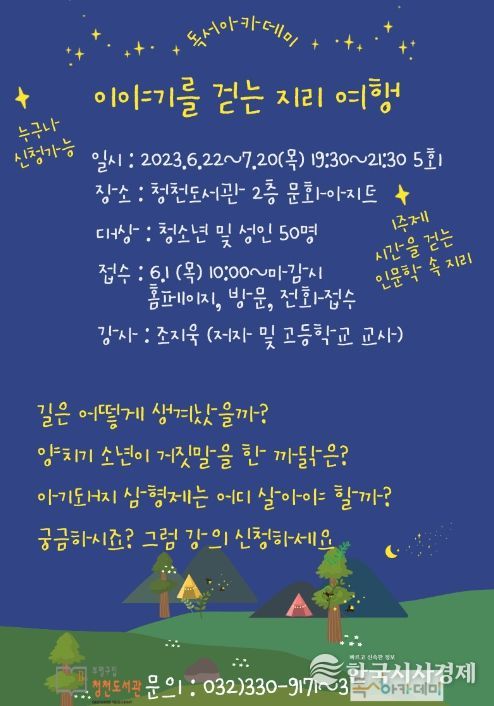 독서아카데미
이야기를 걷는 지리 여행
누구나
신청가능
일시 : 2023.6.22~7.20(목) 19:30~21:30 5회
장소 : 청천도서관 2층 문화아지트
대상 : 청소년 및 성인 50명
1주제
시간을 걷는
인문학 속 지리
접수 : 6.1 (목) 10:00~마감시
홈페이지, 방문, 전화접수
강사 : 조지욱 (저자 및 고등학교 교사)
길은 어떻게 생겨났을까?
양치기 소년이 거짓말을 한 까닭은?
아기돼지 삼형제는 어디 살아야 할까?
궁금하시죠? 그럼 강의 신청하세요
부평구립
청천도서관
문의 : 032)330-9171~3
바르고 신속한 정보
한국시사경제
독서아카데미